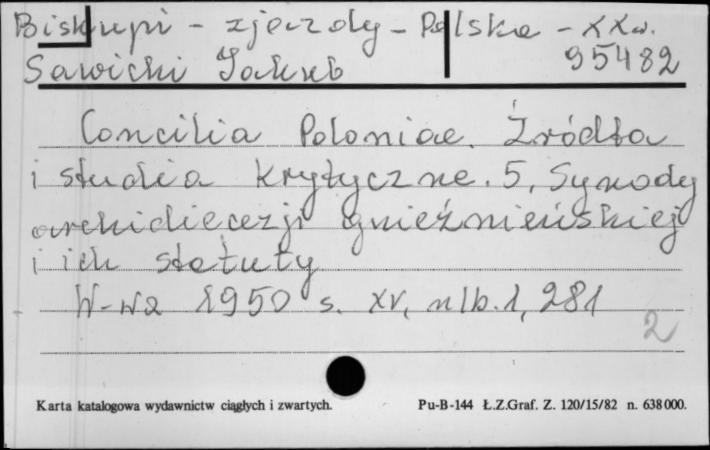 Biskupi - zjazdy - Polska - XX w.
Sawicki Jakub 95482
Concilia Poloniae. Źródła
i studia krytyczne. 5, Synody
archidiecezji gnieźnieńskiej
i ich statuty
W-wa 1950 s. XV, nlb. 1, 281
2
Karta katalogowa wydawnictw ciągłych i zwartych. Pu-B-144 Ł.Z.Graf. Z. 120/15/82 n. 638000.